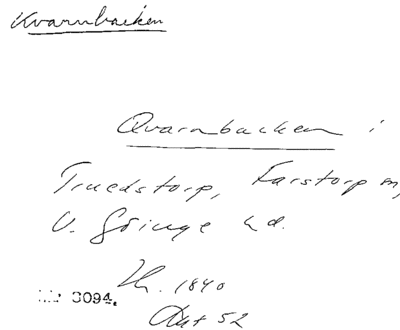 Kvarnbacken
Qvarnbacken i
Truedstorp, Farstorp sn,
V. Göinge hd.
Hr. 1840
Akt 52
3094.